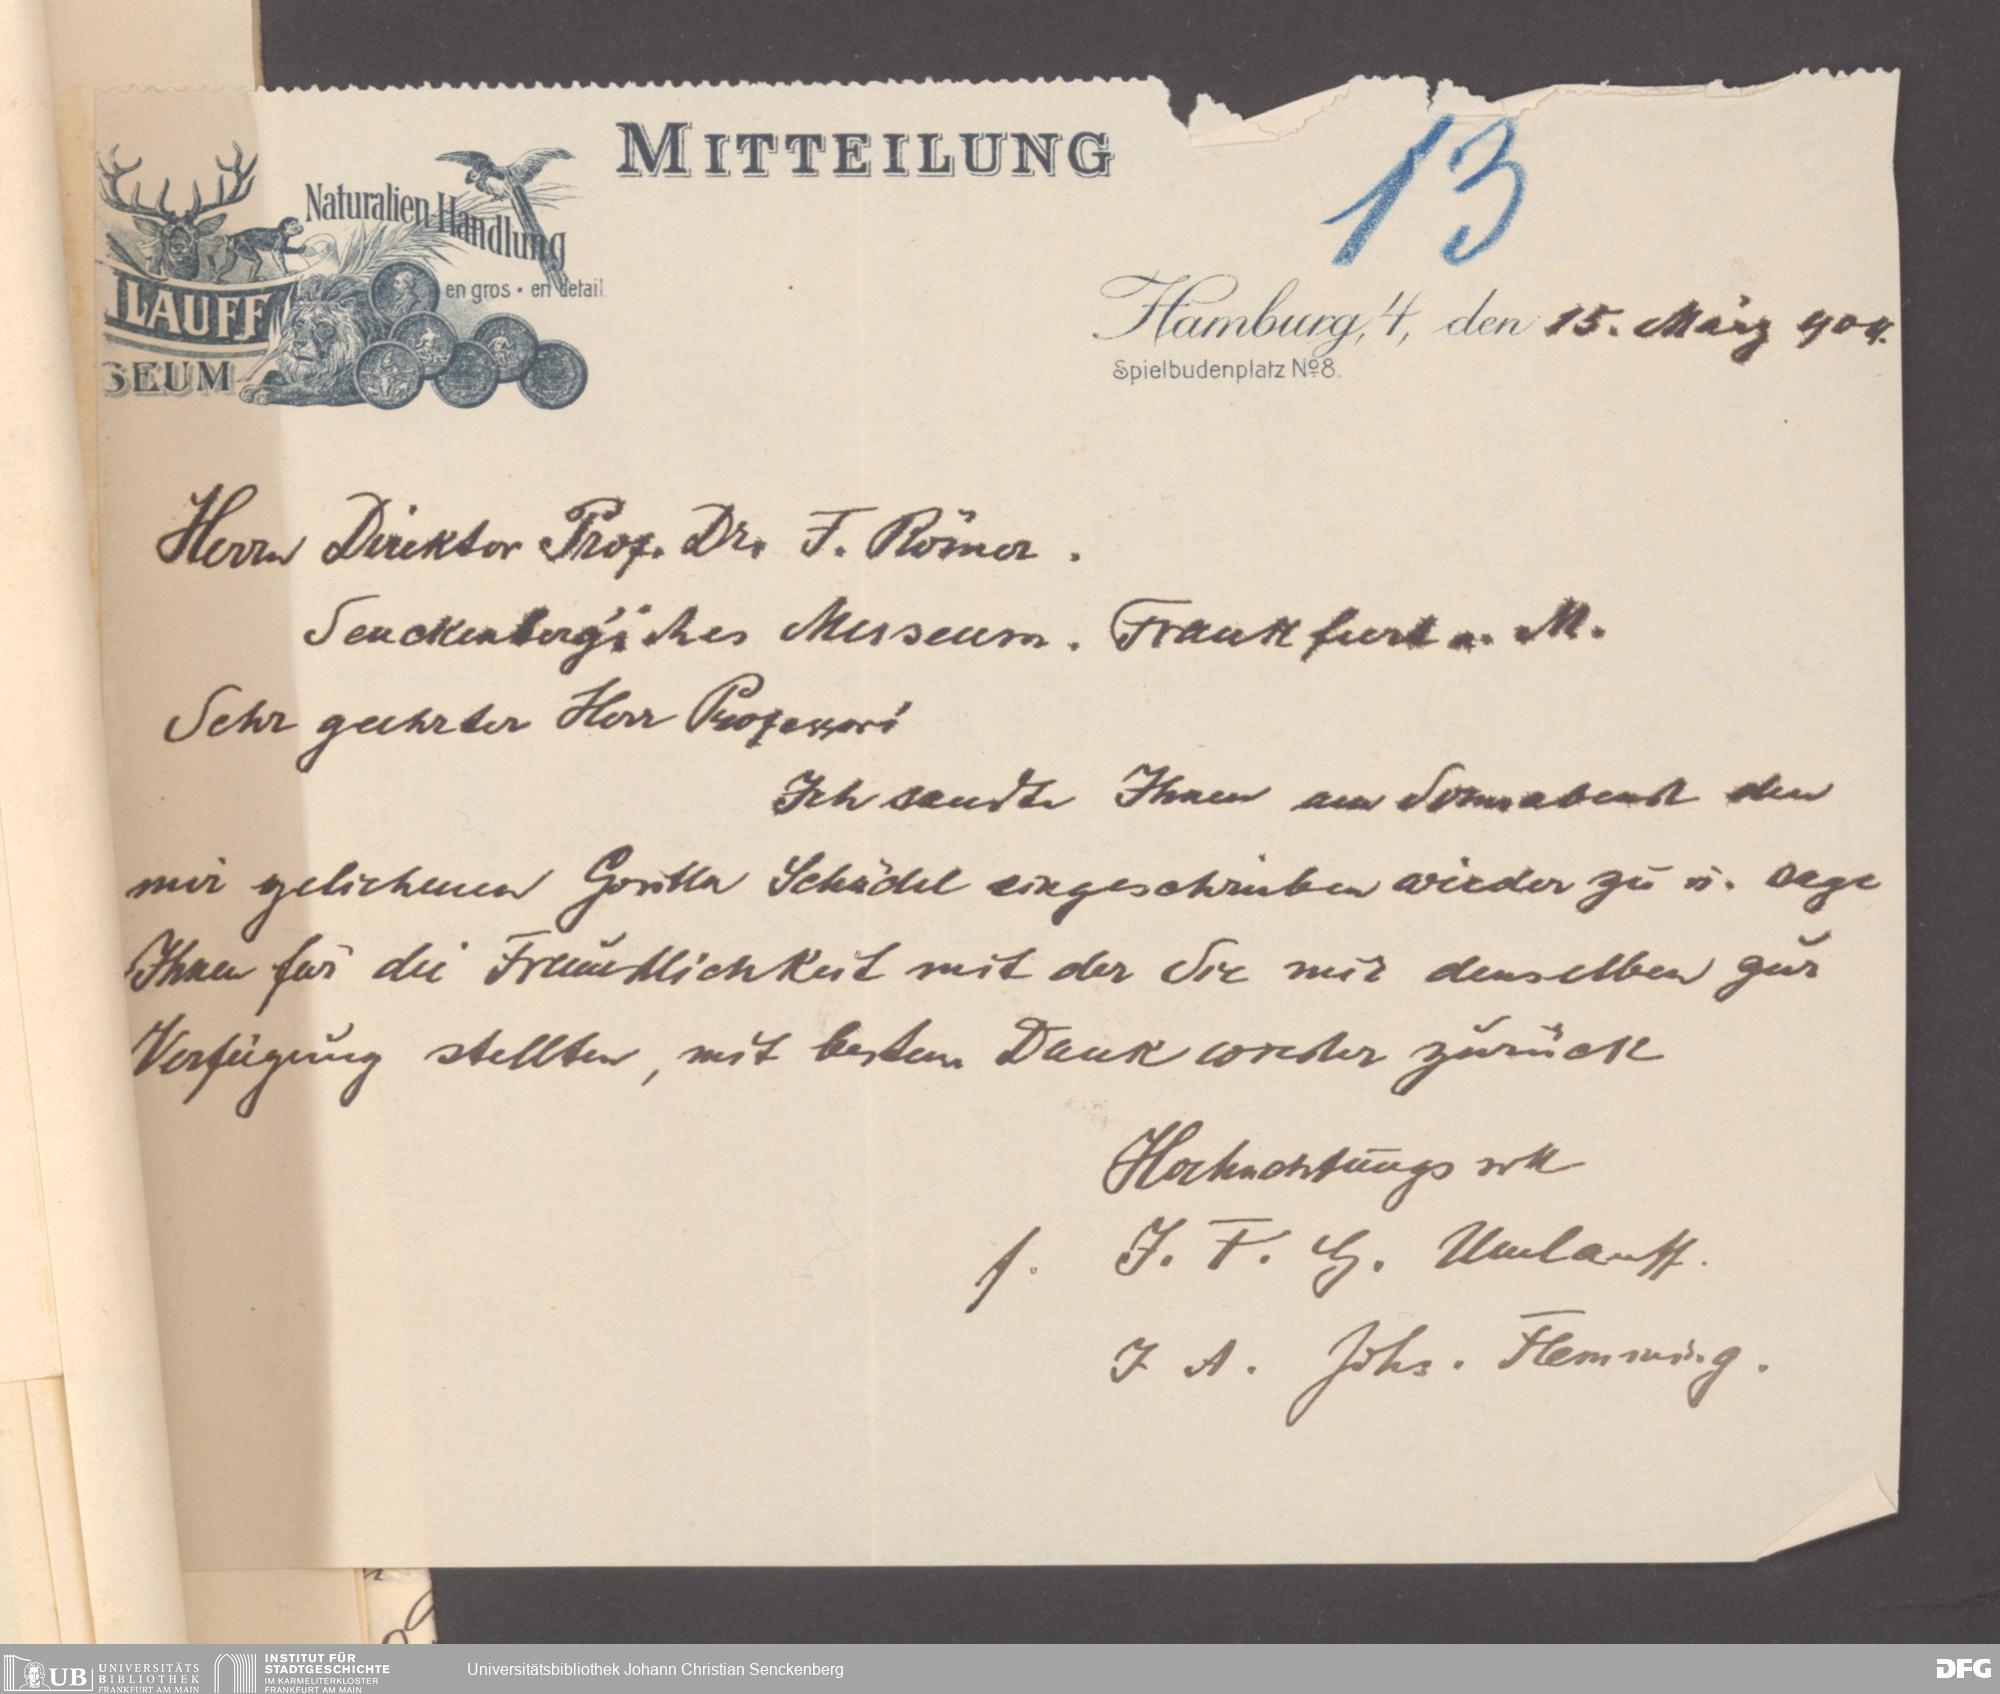 MITTEILUNG
13
Naturalien-Handlung
en gros • en detail
LAUFF
SEUM
Hamburg, 4, den 15. März 904.
Spielbudenplatz No 8.
Herrn Direktor Prof. Dr. F. Römer.
Senckenberg'sches Museum. Frankfurt a. M.
Sehr geehrter Herr Professor!
Ich sandte Ihnen am Sonnabend den
mir geliehenen Gorilla Schädel eingeschrieben wieder zu u. sage
Ihnen für die Freundlichkeit mit der Sie mir denselben zur
Verfügung stellten, mit bestem Dank wieder zurück
Hochachtungsvoll
f. J. F. G. Umlauff.
I A. Johs. Flemming.
UB UNIVERSITÄTS
BIBLIOTHEK
FRANKFURT AM MAIN
INSTITUT FÜR
STADTGESCHICHTE
IM KARMELITERKLOSTER
FRANKFURT AM MAIN
Universitätsbibliothek Johann Christian Senckenberg
DFG